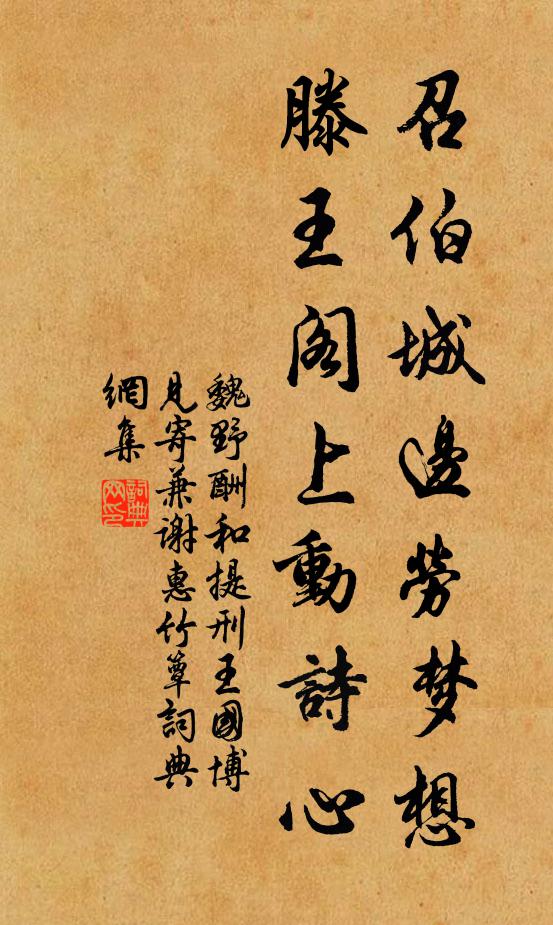 召伯城邊勞梦想
滕王阁上動詩心
魏野酬和提刑王國博
見寄兼謝惠竹簟詞典
網集
詞典
网印